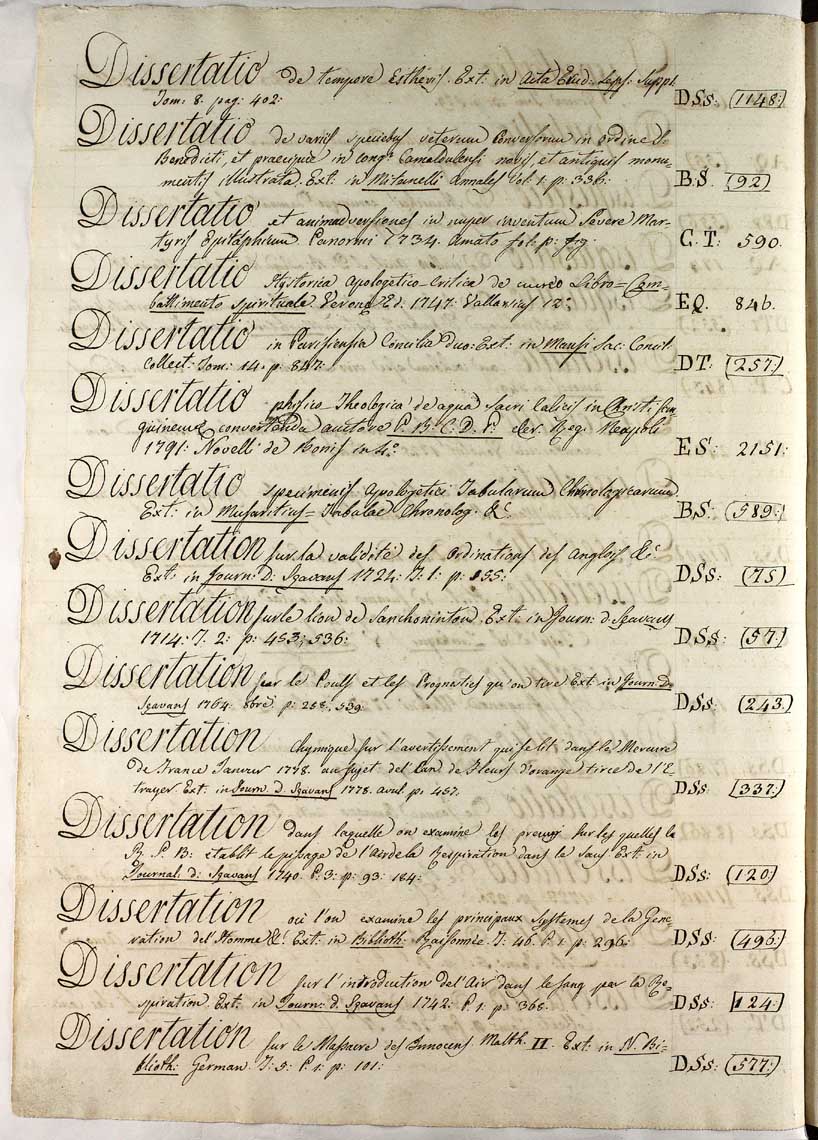 Dissertatio de tempore Estheris. Ext: in Acta Erud: Lyps: Suppl.
Tom: 8. pag: 402: DSs: (1148:)
Dissertatio de variis speciebus veterum Conversorum in ordine S.
Benedicti, et praecipue in cong:e Camaldulensi novis, et antiquis monu-
mentis illustrata. Ext: in Mitarelli Annales Vol. 1. p: 336: B.S. (92)
Dissertatio et animadversiones in nuper inventum Severe Mar-
tyris Epitaphium Panormi 1734. Amato fol: p: fig: C.T: 590.
Dissertatio Hystorica Apologetico-Critica de aureo Libro = Com-
battimento spirituale Verone Ed. 1747: Vallarsius 12.° EQ. 846.
Dissertatio in Parisiensia Concilia duo: Ext: in Mansi Sac: Concil:
collect: Tom: 14. p: 847: DT: (257:)
Dissertatio phisico Theologica de aqua Sacri Calicis in Christi San-
guineme convertenda auctore P. B. C. D. P. cler. Reg. Neapoli
1791: Novelli de Bonis in 4.° ES: 2151:
Dissertatio speciminis Apologetici Tabularum Chronologicarum
Ext: in Musantius = Tabulae Chronolog. &c. B.S: (589:)
Dissertation sur la validité des ordinations des Anglois &c
Ext. in Journ: D: Sçavans 1724: T: 1: p: 155: DSs: (75)
Dissertation sur le lion de Sanchoninton. Ext: in Journ: d: Sçavans
1714: T. 2: p: 453; 536: DSs: (57:)
Dissertation sur le Pouls et les Prognostics qu'on tire Ext: in Journ: D:
Sçavans 1764. 8bre: p: 258. 539: DSs: (243.)
Dissertation Chymique sur l'avertissement qui se lit dans le Mercure
de France Janvier 1778. au sujet de l'Eau de Fleurs d'orange tirée de l'E-
trayer Ext: in Journ: d. Sçavans 1778. avril p: 457. DSs: (337:)
Dissertation dans laquelle on examine les preuves sur les quelles le
R. P. B: établit le passage de l'Air de la Respiration dans le Sang Ext: in
Journal: d: Sçavans 1740. P: 3: p: 93: 184: DSs: (120)
Dissertation où l'on examine les principaux Systemes de la Gene-
ration de l'Homme &c. Ext: in Biblioth: Raisonnée T: 46. P. 1. p: 296: DSs: (496:)
Dissertation sur l'introduction de l'Air dans le sang par la Re-
spiration Ext: in Journ: d: Sçavans 1742: P. 1: p: 368: DSs: (124:)
Dissertation sur le Massacre des Innocens Matth. II. Ext: in N. Bi-
blioth: German. T: 9: P. 1: p: 101: DSs: (577:)